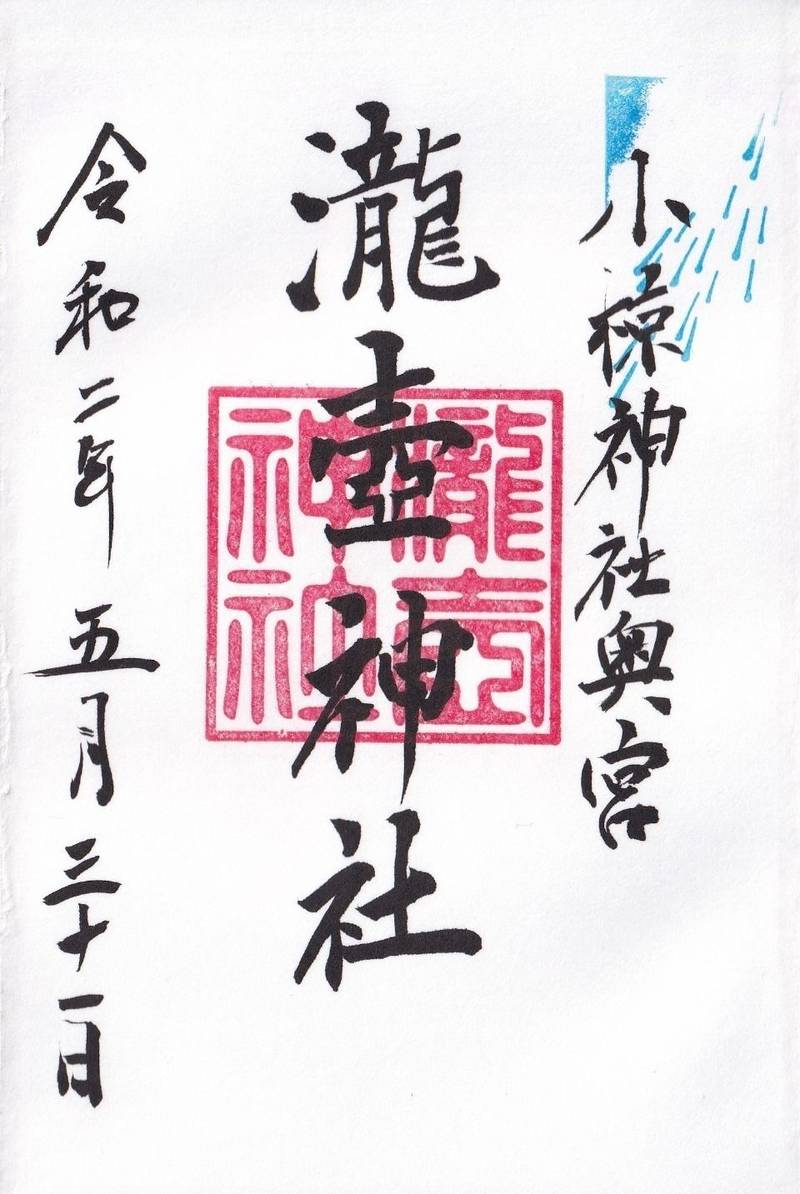 小椋神社奥宮
瀧壺神社
瀧壺
神社
令和二年五月三十一日